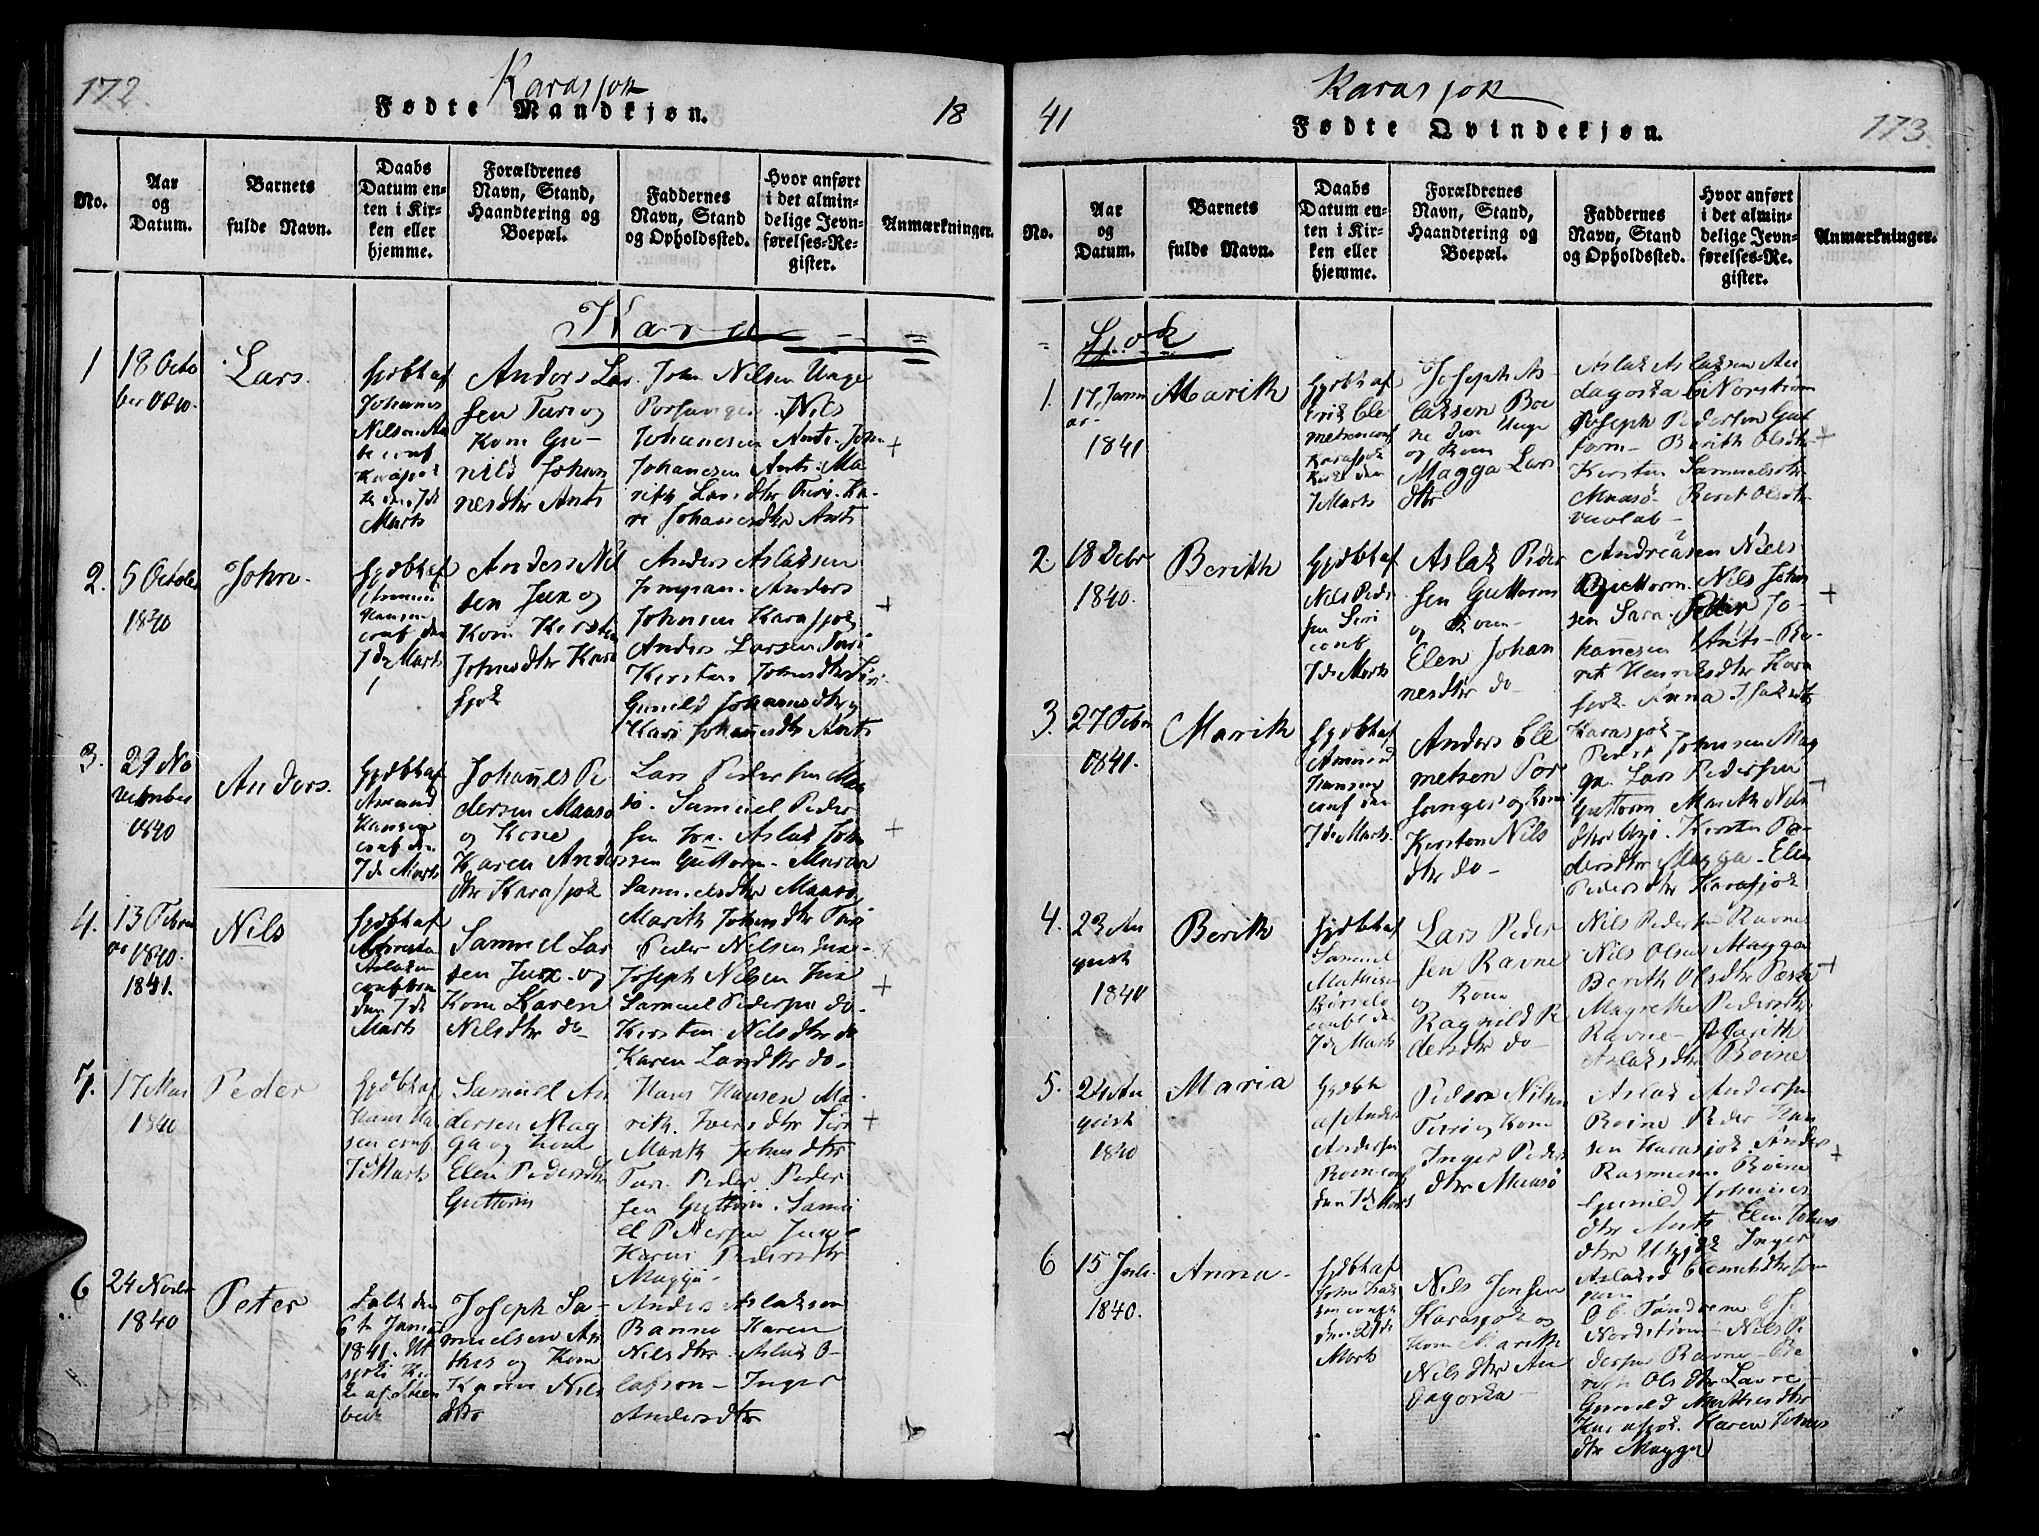 172.
Karasjok
Fødte Mandkjøn.
18
No.
Aar
og
Datum.
Barnets
fulde Navn.
Daabs
Datum en-
ten i Kir-
ken eller
hjemme.
Forældrenes
Navn, Stand,
Haandtering og
Boepæl.
Faddernes
Navn, Stand
og Opholdssted.
Hvor anført
i det almin-
delige Jevn-
førelses-Re-
gister.
Anmærkninger.
Kara
1
18 Octo
ber 1840.
Lars.
hjdbt af
Johanes
Nilsen
conf
Karasjok
K den 7 de
Marts
Anders Lar
sen Turi og
Kone Gu-
nild Johan
nesdtr Anti
John Nilsen Unge
Porsanger. Nils
Johanesen Anti. John
Johanesen Anti. Ma
rith Larsdtr Turi. Ka-
ri Johanesdtr Anti
+
2.
5 Octobr
1840
John.
hjdbt af
Amund
Hansen
conf den
7 de Marts
Anders Nil
sen Jux og
Kone Kirsten
Johnsdtr Kara
sjok
Anders Aslaksen
Anders
Johnsen Karasjok
Anders Larsen Turi
Kirsten Johnsdtr Siri
Gunild Johanesdtr
Kari Johannesdtr Anti
+
3.
29 No
vember
1840
Anders.
hjdbt af
Amund
Hansen
conf den
7 de Marts
Johannes Pe
dersen Maasø
og Kone
Karen Anders
dtr Karasjok
Lars Pedersen Maa
sø. Samuel Peder
sen Jox. Aslak John
sen Guttorm. Maren
Samuelsdtr Maasø
Marith Johnsdtr Turi
+
4.
13 Febru
ar 1840.
1841.
Nils
hjdbt af
Aslaksen
conf
den 7 de
Marts
Samuel Lar
sen Jux. og
Kone Karen
Nilsdtr do
Peder Nilsen Jux-
Joseph Nilsen Jux
Samuel Pedersen do-
Kirsten Nilsdtr do
Karen Larsdtr do-
+
7.
17 Mai
1840
Peder
hjdbt af
Hans Han
sen conf
7 de Marts
Samuel An
dersen Mag
ga og Kone
Elen Pedersdtr
Guttorm
Hans Hansen Ma-
rith. Iversdtr Siri
Marith Johnsdtr
Turi Peder Peder
sen Guttorm. Samu
el Pedersen Jux
Karen Pedersdtr
Magga-
+
6
24 Novbr
1840
Peter
Døbt den
6 te Januar
1841. Ut
sjoki Kir
ke af Steen
bek
Joseph Sa-
muelsen An
this og Kone
Karen Nils
dtr
Anders Aslaksen
Banne Karen
Nilsdtr. Aslak O-
lafson- Inger
Andersdtr
41
Karasjok
Fødte Qvindekjøn.
173.
No.
Aar
og
Datum.
Barnets
fulde Navn.
Daabs
Datum en-
ten i Kir-
ken eller
hjemme.
Forældrenes
Navn, Stand,
Haandtering og
Boepæl.
Faddernes
Navn, Stand
og Opholdssted.
Hvor anført
i det almin-
delige Jevn-
førelses-Re-
gister.
Anmærkninger.
Sjok
1.
17 Janu
ar-
1841
Marith
hjdbt af
Erik Cle
metsen conf
Karasjok
Kirke den
7 Marts
Joseph As-
laksen Boi
ne Jox Unge
og Kone
Magga Lars
dtr
Aslak Aslaksen An
dagoska C Norstrøm
Joseph Pedersen Gut
torm- Berith Olsdtr
Kirsten Samuelsdtr
Maasø- Berit Olsdtr
+
2.
18 Debr
1840.
Berith
hjdbt af
Nils Peder
sen Siri
conf
7 de Marts
Aslak Peder
sen Guttorm
og Kone
Elen Johan
nesdtr do-
Andreasen Niels
Guttorm. Nils John
sen Sara Peder Jo-
hannesen Anti- Be-
rit Henriksdtr Kara
sjok. Anna Isaksdtr
Karasjok-
+
3.
27 Febru
1841.
Marith
hjdbt af
Amund
Hansen
conf den
7 de Marts
Anders Cle
metsen Por
sanger og Kone
Kirsten Nils
dtr do-
Peder Johnsen Mag
ga. Lars Pedersen
Guttorm Marith Nils
dtr Utzi. Kirsten Pe-
dersdtr Magga- Elen
Pedersdtr Karasjok
+
4.
23 Au
gust
1840
Berith
hjdbt af
Samuel
Mathisen
conft den
7 de Marts
Lars Peder
sen Ravne
og Kone
Ragnild Pe
dersdtr do-
Nils Pedersen Ravne
Nils Olsen Magga
Berith Olsdtr Pæske
Magrethe Pedersdtr
Ravne- Marith
Aslaksdtr Boine
+
5.
24 Au
gust
1840
Maria
hjdbt
af Anders
Andersen
Boin conf
den 7 de Marts
Pedere Nilsen
Turi og Kone
Inger Peder
dtr Maasø
Aslak Andersen
Boine Peder Han
sen Karasjok. Anders
Rasmusen Boine
Gunild Johannes
dtr Anti Elen Johns
dtr Utzi Inger
Clemetsdtr
+
6
15 Juli
1840.
Anna-
hjdbt af
John Isak
sen conft
den 21 de
Marts
Nils Jensen
Karasjok og
Kone Marith
Nilsdtr An
dagoska-
Nordstrøm- Nils Pe
dersen Ravne- Be
rith Olsdtr Lavre-
Gunild Mathisdtr
Karasjok. Karen Johns
dtr Magga